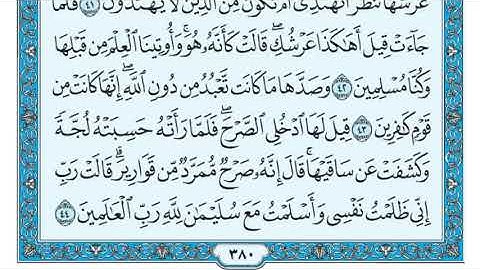 عَرْشَهَا نَنظُرْ أَتَهْتَدِىٓ أَمْ تَكُونُ مِنَ ٱلَّذِينَ لَا يَهْتَدُونَ ٤١ فَلَمَّا
جَآءَتْ قِيلَ أَهَٰكَذَا عَرْشُكِ ۖ قَالَتْ كَأَنَّهُۥ هُوَ ۚ وَأُوتِينَا ٱلْعِلْمَ مِن قَبْلِهَا
وَكُنَّا مُسْلِمِينَ ٤٢ وَصَدَّهَا مَا كَانَت تَّعْبُدُ مِن دُونِ ٱللَّهِ ۖ إِنَّهَا كَانَتْ مِن
قَوْمٍ كَٰفِرِينَ ٤٣ قِيلَ لَهَا ٱدْخُلِى ٱلصَّرْحَ ۖ فَلَمَّا رَأَتْهُ حَسِبَتْهُ لُجَّةً
وَكَشَفَتْ عَن سَاقَيْهَا ۚ قَالَ إِنَّهُۥ صَرْحٌ مُّمَرَّدٌ مِّن قَوَارِيرَ ۗ قَالَتْ رَبِّ
إِنِّى ظَلَمْتُ نَفْسِى وَأَسْلَمْتُ مَعَ سُلَيْمَٰنَ لِلَّهِ رَبِّ ٱلْعَٰلَمِينَ ٤٤
٣٨٠